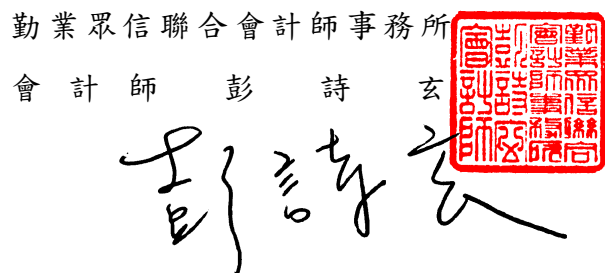 勤業眾信聯合會計師事務所
會計師 彭詩玄
勤業眾信聯合
會計師事務所
彭詩玄
會計師
彭詩玄